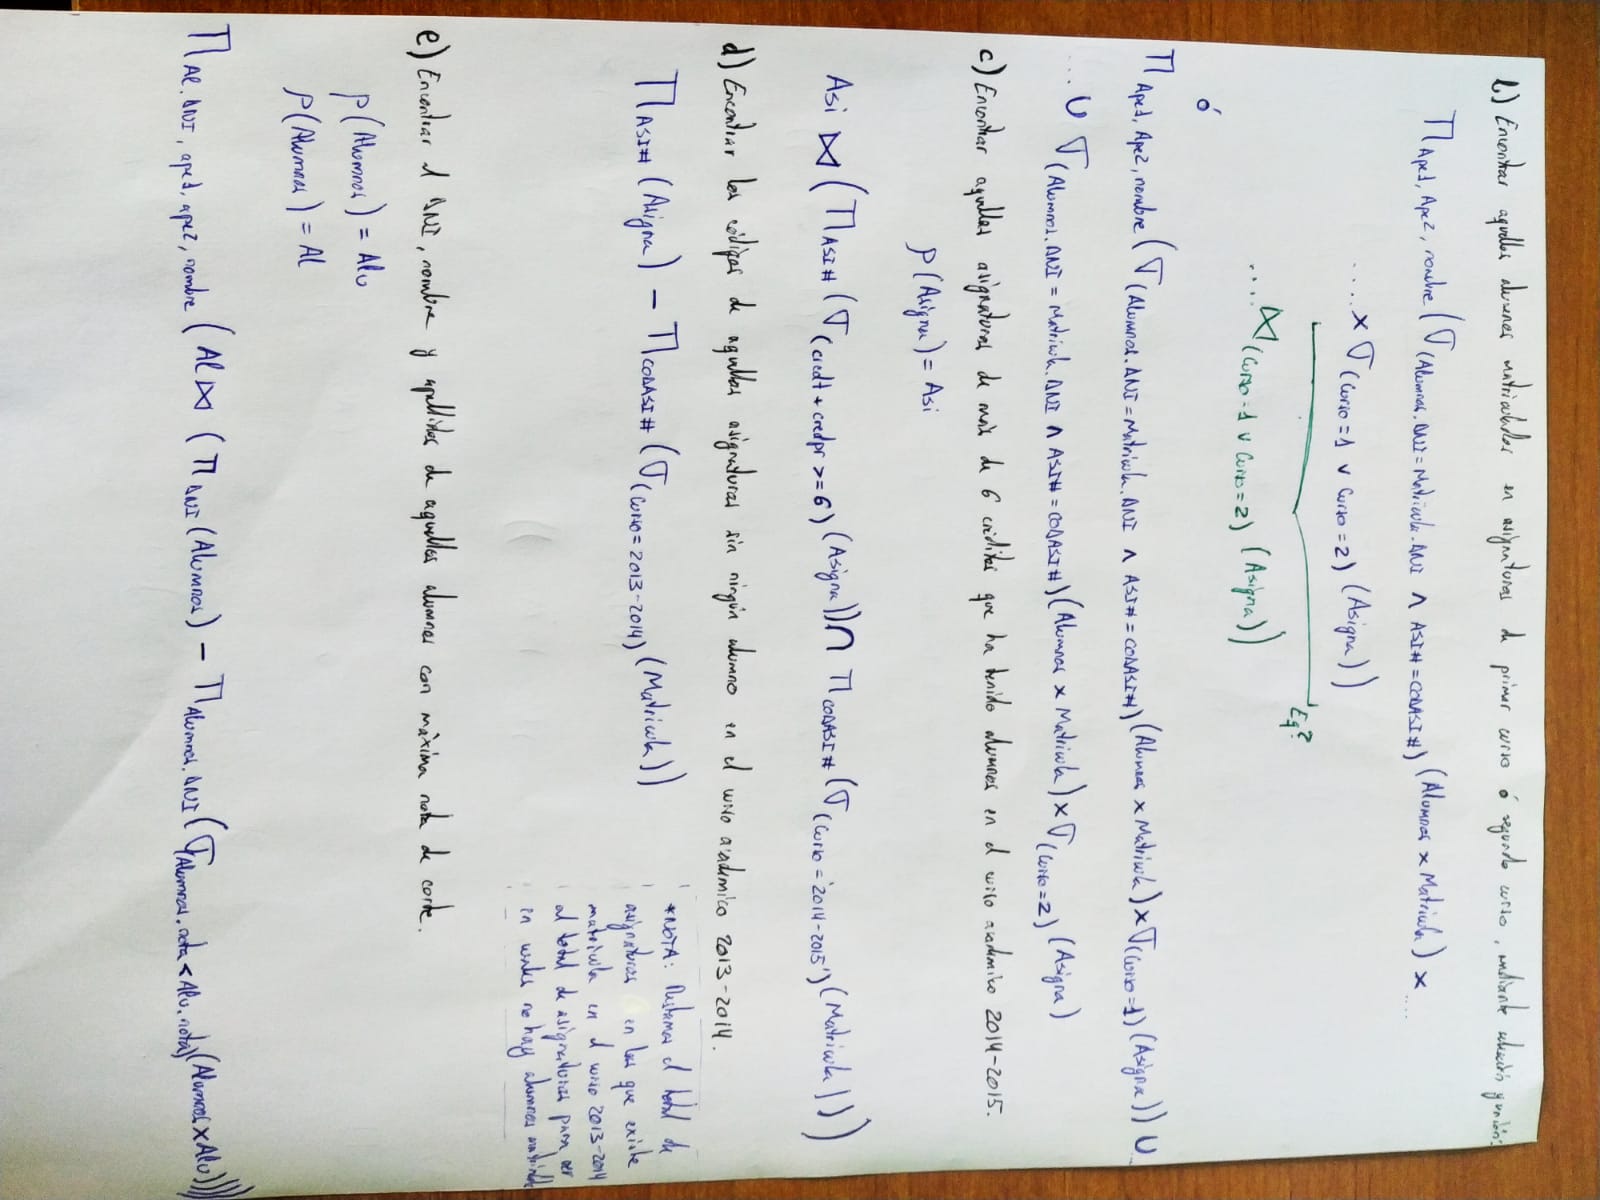 b) Encontrar aquellos alumnos matriculados en asignaturas de primer curso ó segundo curso, mediante selección y unión.
Π Ape1, Ape2, nombre (σ (Alumnos.DNI = Matricula.DNI ∧ ASI# = CODASI#) (Alumnos x Matricula) x ...
..... x σ (curso = 1 ∨ curso = 2) (Asigna))
Eq?
..... ⋈ (curso = 1 ∨ curso = 2) (Asigna))
ó
Π Ape1, Ape2, nombre (σ (Alumnos.DNI = Matricula.DNI ∧ ASI# = CODASI#) (Alumnos x Matricula) x σ (curso = 1) (Asigna)) ∪
... ∪ σ (Alumnos.DNI = Matricula.DNI ∧ ASI# = CODASI#) (Alumnos x Matricula) x σ (curso = 2) (Asigna)
c) Encontrar aquellas asignaturas de más de 6 créditos que ha tenido alumnos en el curso academico 2014-2015.
ρ (Asigna) = Asi
Asi ⋈ (Π ASI# (σ (credt + credpr >= 6) (Asigna)) ∩ Π CODASI# (σ (curso = '2014-2015') (Matricula)))
d) Encontrar los códigos de aquellas asignaturas sin ningún alumno en el curso academico 2013-2014.
Π ASI# (Asigna) − Π CODASI# (σ (curso = 2013-2014) (Matricula))
*NOTA: Restamos el total de
asignaturas en las que existe
matricula en el curso 2013-2014
al total de asignaturas para ver
en cuales no hay alumnos
e) Encontrar el DNI, nombre y apellidos de aquellos alumnos con màxima nota de corte.
ρ (Alumnos) = Alu
ρ (Alumnos) = Al
Π Al.DNI, ape1, ape2, nombre (Al ⋈ (Π DNI (Alumnos) − Π Alumnos.DNI (σ Alumnos.nota < Alu.nota) (Alumnos x Alu))))